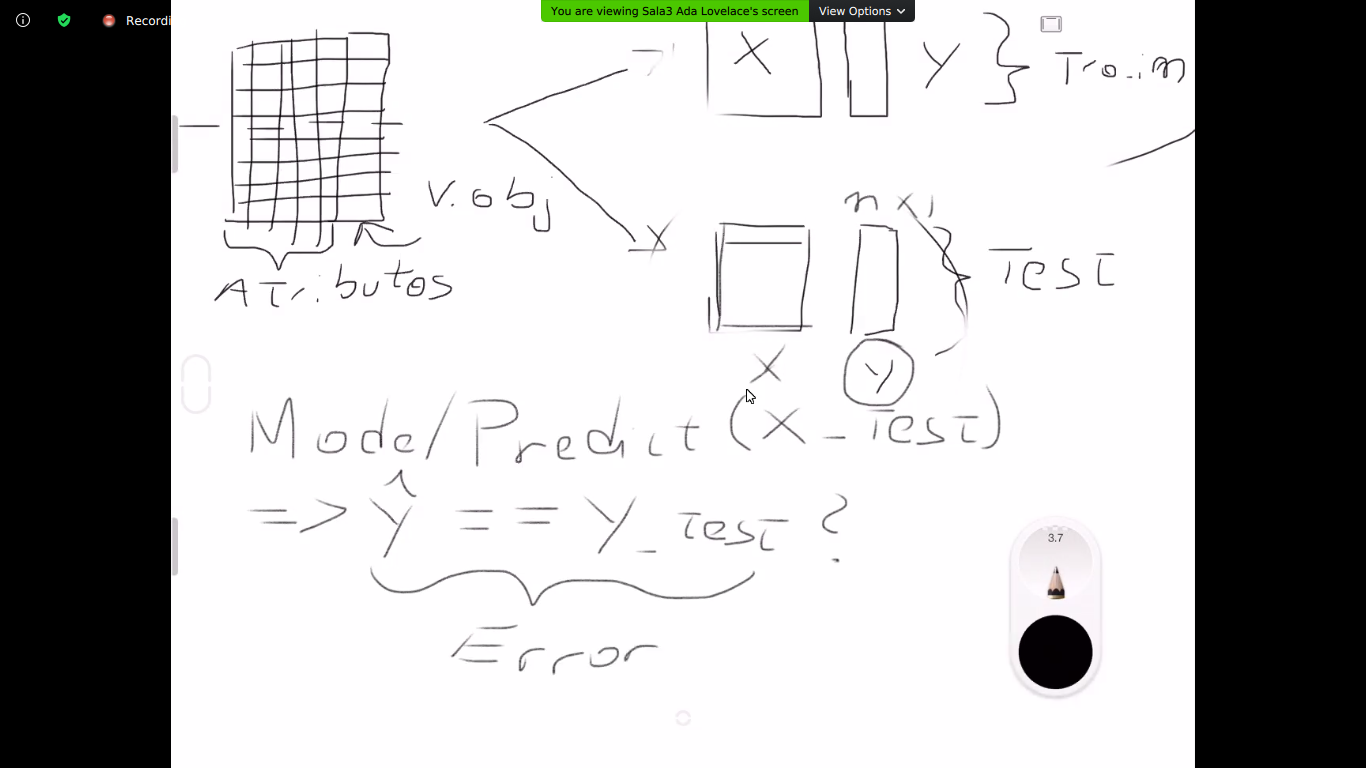 Recordi
You are viewing Sala3 Ada Lovelace's screen
View Options
X
Y
Train
V. obj
Atributos
n x 1
Test
X
Y
Model Predict (X_Test)
=> Ŷ == Y_test ?
Error
3.7